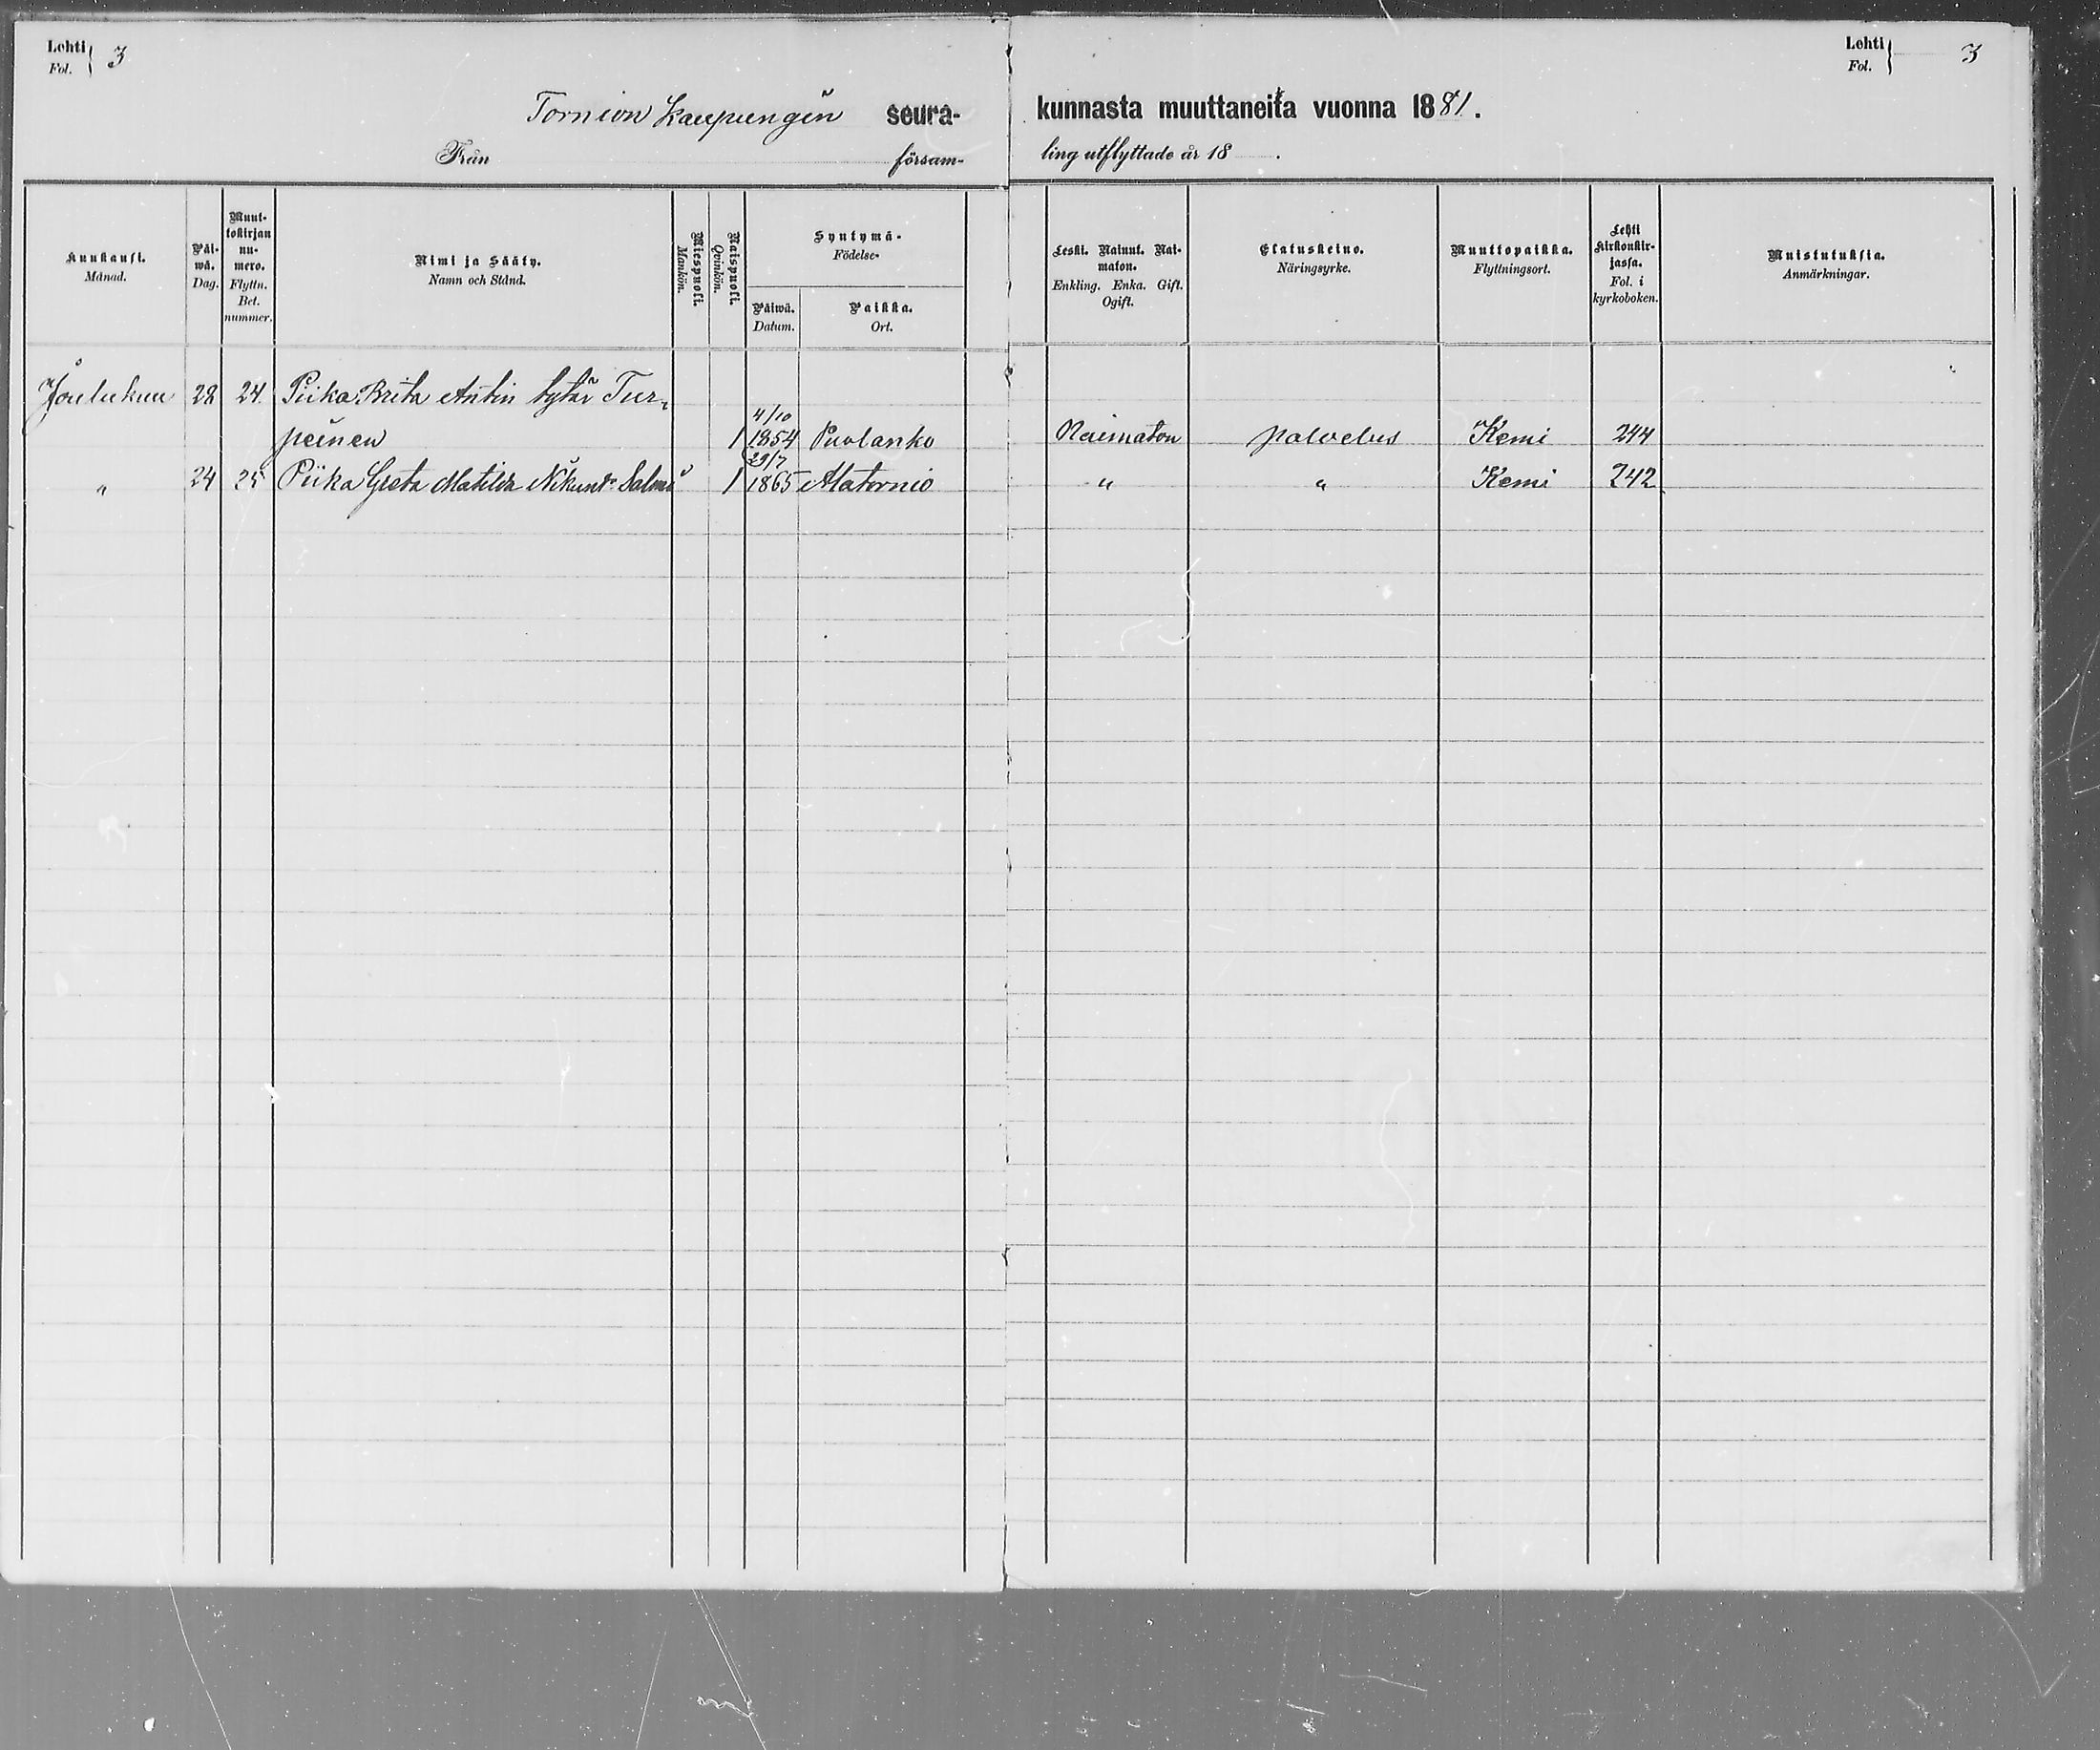 Lehti
Fol. 3
Lehti
Fol. 3
Tornion kaupungin seura-
kunnasta muuttaneita vuonna 1881.
Från försam-
ling utflyttade år 18 .
Kuukausi.
Månad.
Päi-
wä.
Dag.
Muut-
tokirjan
nu-
mero.
Flyttn.
Bet.
nummer.
Nimi ja Sääty.
Namn och Stånd.
Miespuoli.
Mankön.
Naispuoli.
Qvinkön.
Syntymä-
Födelse-
Päiwä.
Datum.
Paikka.
Ort.
Leski. Nainut. Nai-
maton.
Enkling. Enka. Gift.
Ogift.
Elatuskeino.
Näringsyrke.
Muuttopaikka.
Flyttningsort.
Lehti
Kirkonkir-
jassa.
Fol. i
kyrkoboken.
Muistutuksia.
Anmärkningar.
Joulukuu 22 24 Piika Brita Antin tytär Tur-
peinen 1 4/10 1854 Puolanko Naimaton palvelus Kemi 244
" 24 25 Piika Greta Matilda Salmi 1 29/7 1865 Alatornio " " Kemi 242